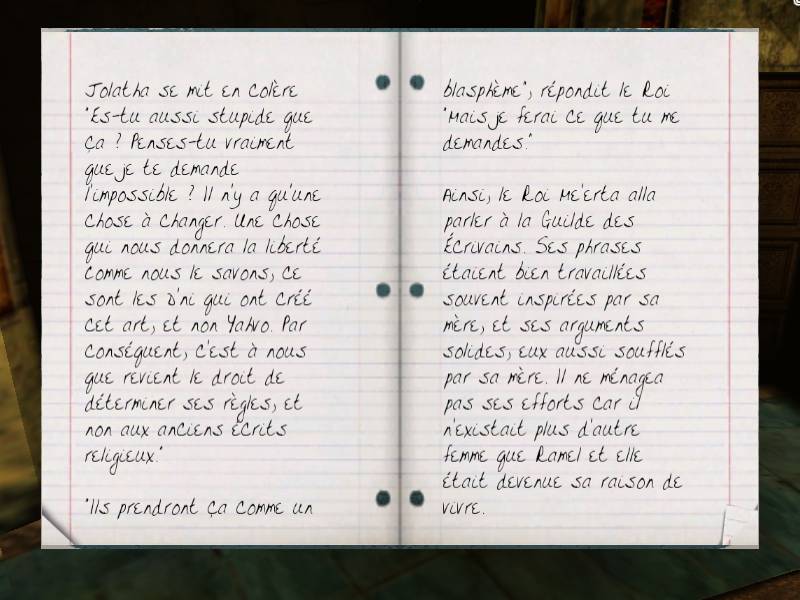 Jolatha se mit en colère
"Es-tu aussi stupide que
ça ? Penses-tu vraiment
que je te demande
l'impossible ? Il n'y a qu'une
chose à changer. Une chose
qui nous donnera la liberté
comme nous le savons, ce
sont les D'ni qui ont créé
cet art, et non Yahvo. Par
conséquent, c'est à nous
que revient le droit de
déterminer ses règles, et
non aux anciens écrits
religieux."
"Ils prendront ça comme un
blasphème", répondit le Roi
"Mais je ferai ce que tu me
demandes."
Ainsi, le Roi Me'erta alla
parler à la Guilde des
Écrivains. Ses phrases
étaient bien travaillées
souvent inspirées par sa
mère, et ses arguments
solides, eux aussi soufflés
par sa mère. Il ne ménagea
pas ses efforts car il
n'existait plus d'autre
femme que Ramel et elle
était devenue sa raison de
vivre.